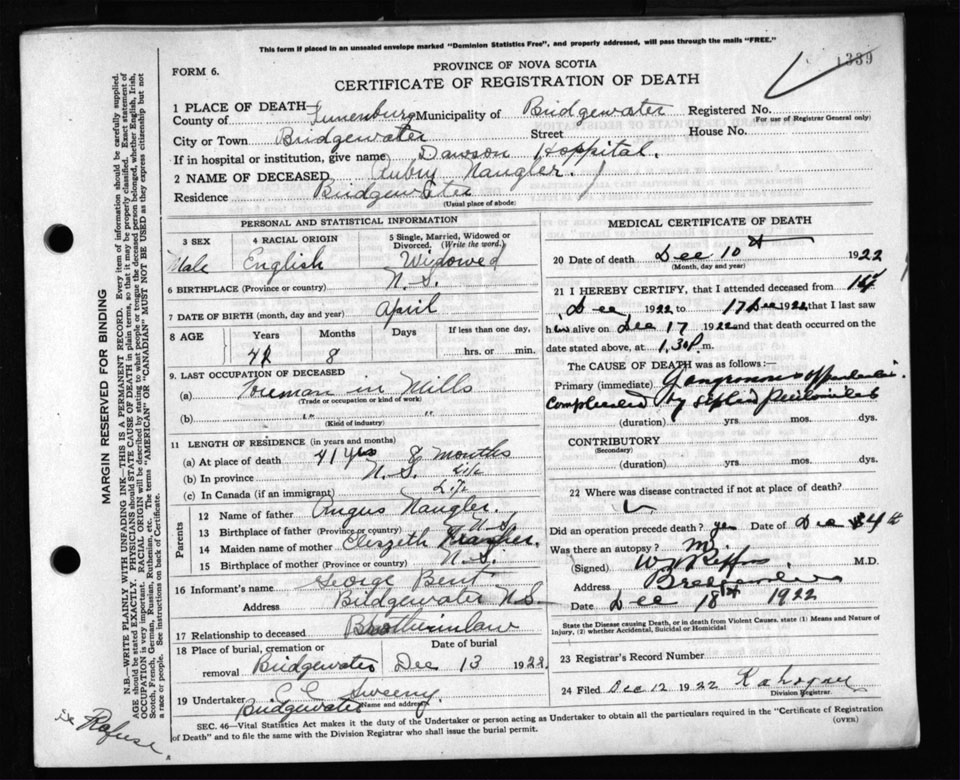 This form if placed in an unsealed envelope marked "Dominion Statistics Free", and properly addressed, will pass through the mails "FREE."
1339
PROVINCE OF NOVA SCOTIA
FORM 6.
CERTIFICATE OF REGISTRATION OF DEATH
1 PLACE OF DEATH—
County of Lunenburg Municipality of Bridgewater Registered No.
(For use of Registrar General only)
City or Town Bridgewater Street House No.
If in hospital or institution, give name Dawson Hospital.
2 NAME OF DECEASED Aubry Naugler.
Residence Bridgewater
(Usual place of abode)
PERSONAL AND STATISTICAL INFORMATION
3 SEX 4 RACIAL ORIGIN 5 Single, Married, Widowed or Divorced. (Write the word.)
Male English Widowed
6 BIRTHPLACE (Province or country) N.S.
7 DATE OF BIRTH (month, day and year) April
8 AGE Years Months Days If less than one day,
8 hrs. or min.
9. LAST OCCUPATION OF DECEASED
(a) Foreman in Mills
(Trade or occupation or kind of work)
(b) " "
(Kind of industry)
11 LENGTH OF RESIDENCE (in years and months)
(a) At place of death 41 yrs 8 months
(b) In province N.S. Life
(c) In Canada (if an immigrant) Life
Parents
12 Name of father Angus Naugler.
13 Birthplace of father (Province or country) N.S.
14 Maiden name of mother
15 Birthplace of mother (Province or country) N.S.
16 Informant's name George Bent
Address Bridgewater N.S.
17 Relationship to deceased Brotherinlaw
18 Place of burial, cremation or removal Date of burial
Bridgewater Dec 13 1922
19 Undertaker C C Sweeny
Bridgewater Name and address.
MEDICAL CERTIFICATE OF DEATH
20 Date of death Dec 10th 1922
(Month, day and year)
21 I HEREBY CERTIFY, that I attended deceased from
Dec 1922 to 17 Dec 1922 that I last saw
him alive on Dec 17 1922 and that death occurred on the
date stated above, at 1.30 P. m.
The CAUSE OF DEATH was as follows:—
Primary (immediate) Gangrenous appendicitis.
Complicated by
(duration) yrs. mos. dys.
CONTRIBUTORY
(Secondary)
(duration) yrs. mos. dys.
22 Where was disease contracted if not at place of death?
Did an operation precede death? yes Date of Dec 4th
Was there an autopsy?
(Signed) M.D.
Address Bridgewater
Date Dec 18th 1922
State the Disease causing Death, or in death from Violent Causes, state (1) Means and Nature of Injury, (2) whether Accidental, Suicidal or Homicidal
23 Registrar's Record Number
24 Filed Dec 12 1922
Division Registrar.
SEC. 46—Vital Statistics Act makes it the duty of the Undertaker or person acting as Undertaker to obtain all the particulars required in the "Certificate of Registration
of Death" and to file the same with the Division Registrar who shall issue the burial permit.
(OVER)
MARGIN RESERVED FOR BINDING
N.B.—WRITE PLAINLY WITH UNFADING INK—THIS IS A PERMANENT RECORD. Every item of information should be carefully supplied.
AGE should be stated EXACTLY. PHYSICIANS should STATE CAUSE OF DEATH in plain terms, so that it may be properly classified. Exact statement of
OCCUPATION is very important. RACIAL ORIGIN will be described by stating to what people or tongue the deceased person belonged, whether English, Irish,
Scotch, French, German, Russian, Ruthenian, etc. The terms "AMERICAN" or "CANADIAN" MUST NOT BE USED as they express citizenship but not
a race or people. See instructions on back of Certificate.